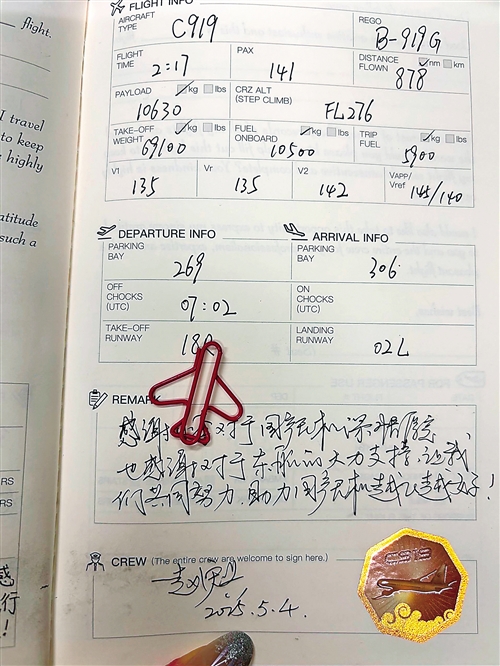 flight.
FLIGHT INFO
AIRCRAFT TYPE C919
REGO B-919G
FLIGHT TIME 2:17
PAX 141
DISTANCE FLOWN nm km 878
PAYLOAD kg lbs 10630
CRZ ALT (STEP CLIMB) FL276
TAKE-OFF WEIGHT kg lbs 69100
FUEL ONBOARD kg lbs 10500
TRIP FUEL kg lbs 5900
V1 135
Vr 135
V2 142
VAPP/Vref 145/140
I travel
to keep
highly
atitude
such a
DEPARTURE INFO
ARRIVAL INFO
PARKING BAY 269
PARKING BAY 306
OFF CHOCKS (UTC) 07:02
ON CHOCKS (UTC)
TAKE-OFF RUNWAY 18
LANDING RUNWAY 02L
REMARK
感谢 对于国产飞机的深厚
也感谢 对于东航的大力支持,让我
们共同努力,助力国产飞机越飞越好!
CREW (The entire crew are welcome to sign here.)
2025.5.4.
C919
RS
RS
感
行
!